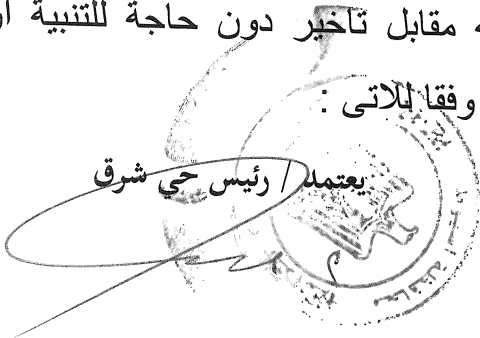 مقابل تاخير دون حاجة للتنبية
وفقا للاتى :
يعتمد / رئيس حي شرق
محافظة